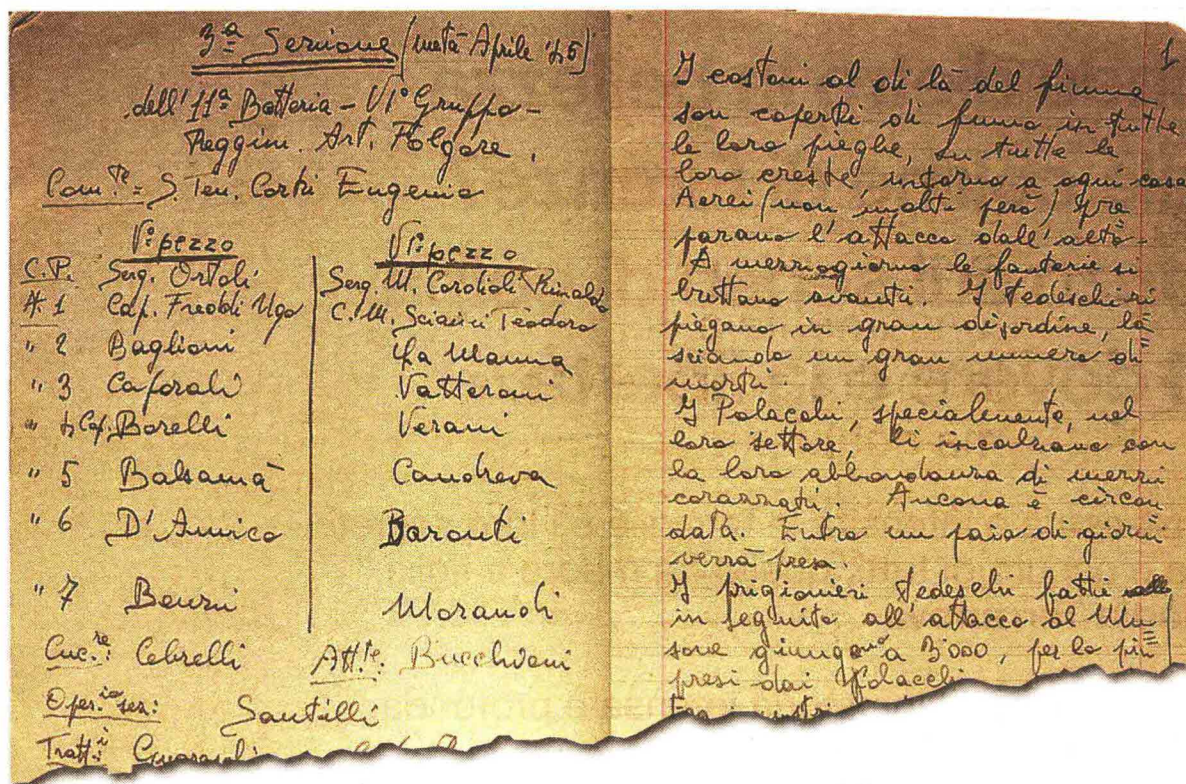 3ª Sezione (metà Aprile '45)
dell'11ª Batteria - VIº Gruppo -
Reggim. Art. Folgore.
Com.te = S. Ten. Corti Eugenio
Vº pezzo
C.P. Serg. Ortoli
A. 1 Cap. Freddi Ugo
" 2 Baglioni
" 3 Caporali
" 4 Cap. Borelli
" 5 Balsamà
" 6 D'Amico
" 7 Benzi
VIº pezzo
Serg. M. Cordioli Rinaldo
C.M. Sciarici Teodoro
La Manna
Vatteroni
Verani
Candreva
Baronti
Morandi
Cuc.re: Cebrelli Att.te: Bucchioni
Oper.io ser: Santilli
Tratt.i
1
I costoni al di là del fiume
son coperti di fumo in tutte
le loro pieghe, su tutte le
loro creste, intorno a ogni casa
Aerei (non molti però) pre
parano l'attacco dall'alto.
A mezzogiorno le fanterie si
buttano avanti. I tedeschi ri
piegano in gran disordine, la=
sciando un gran numero di
morti.
I Polacchi, specialmente, nel
loro settore, li incalzano con
la loro abbondanza di mezzi
corazzati. Ancona è circon
data. Entro un paio di giorni
verrà presa.
I prigionieri tedeschi fatti
in seguito all'attacco al Mu=
sone giungono a 3'000, per lo più
presi dai Polacchi